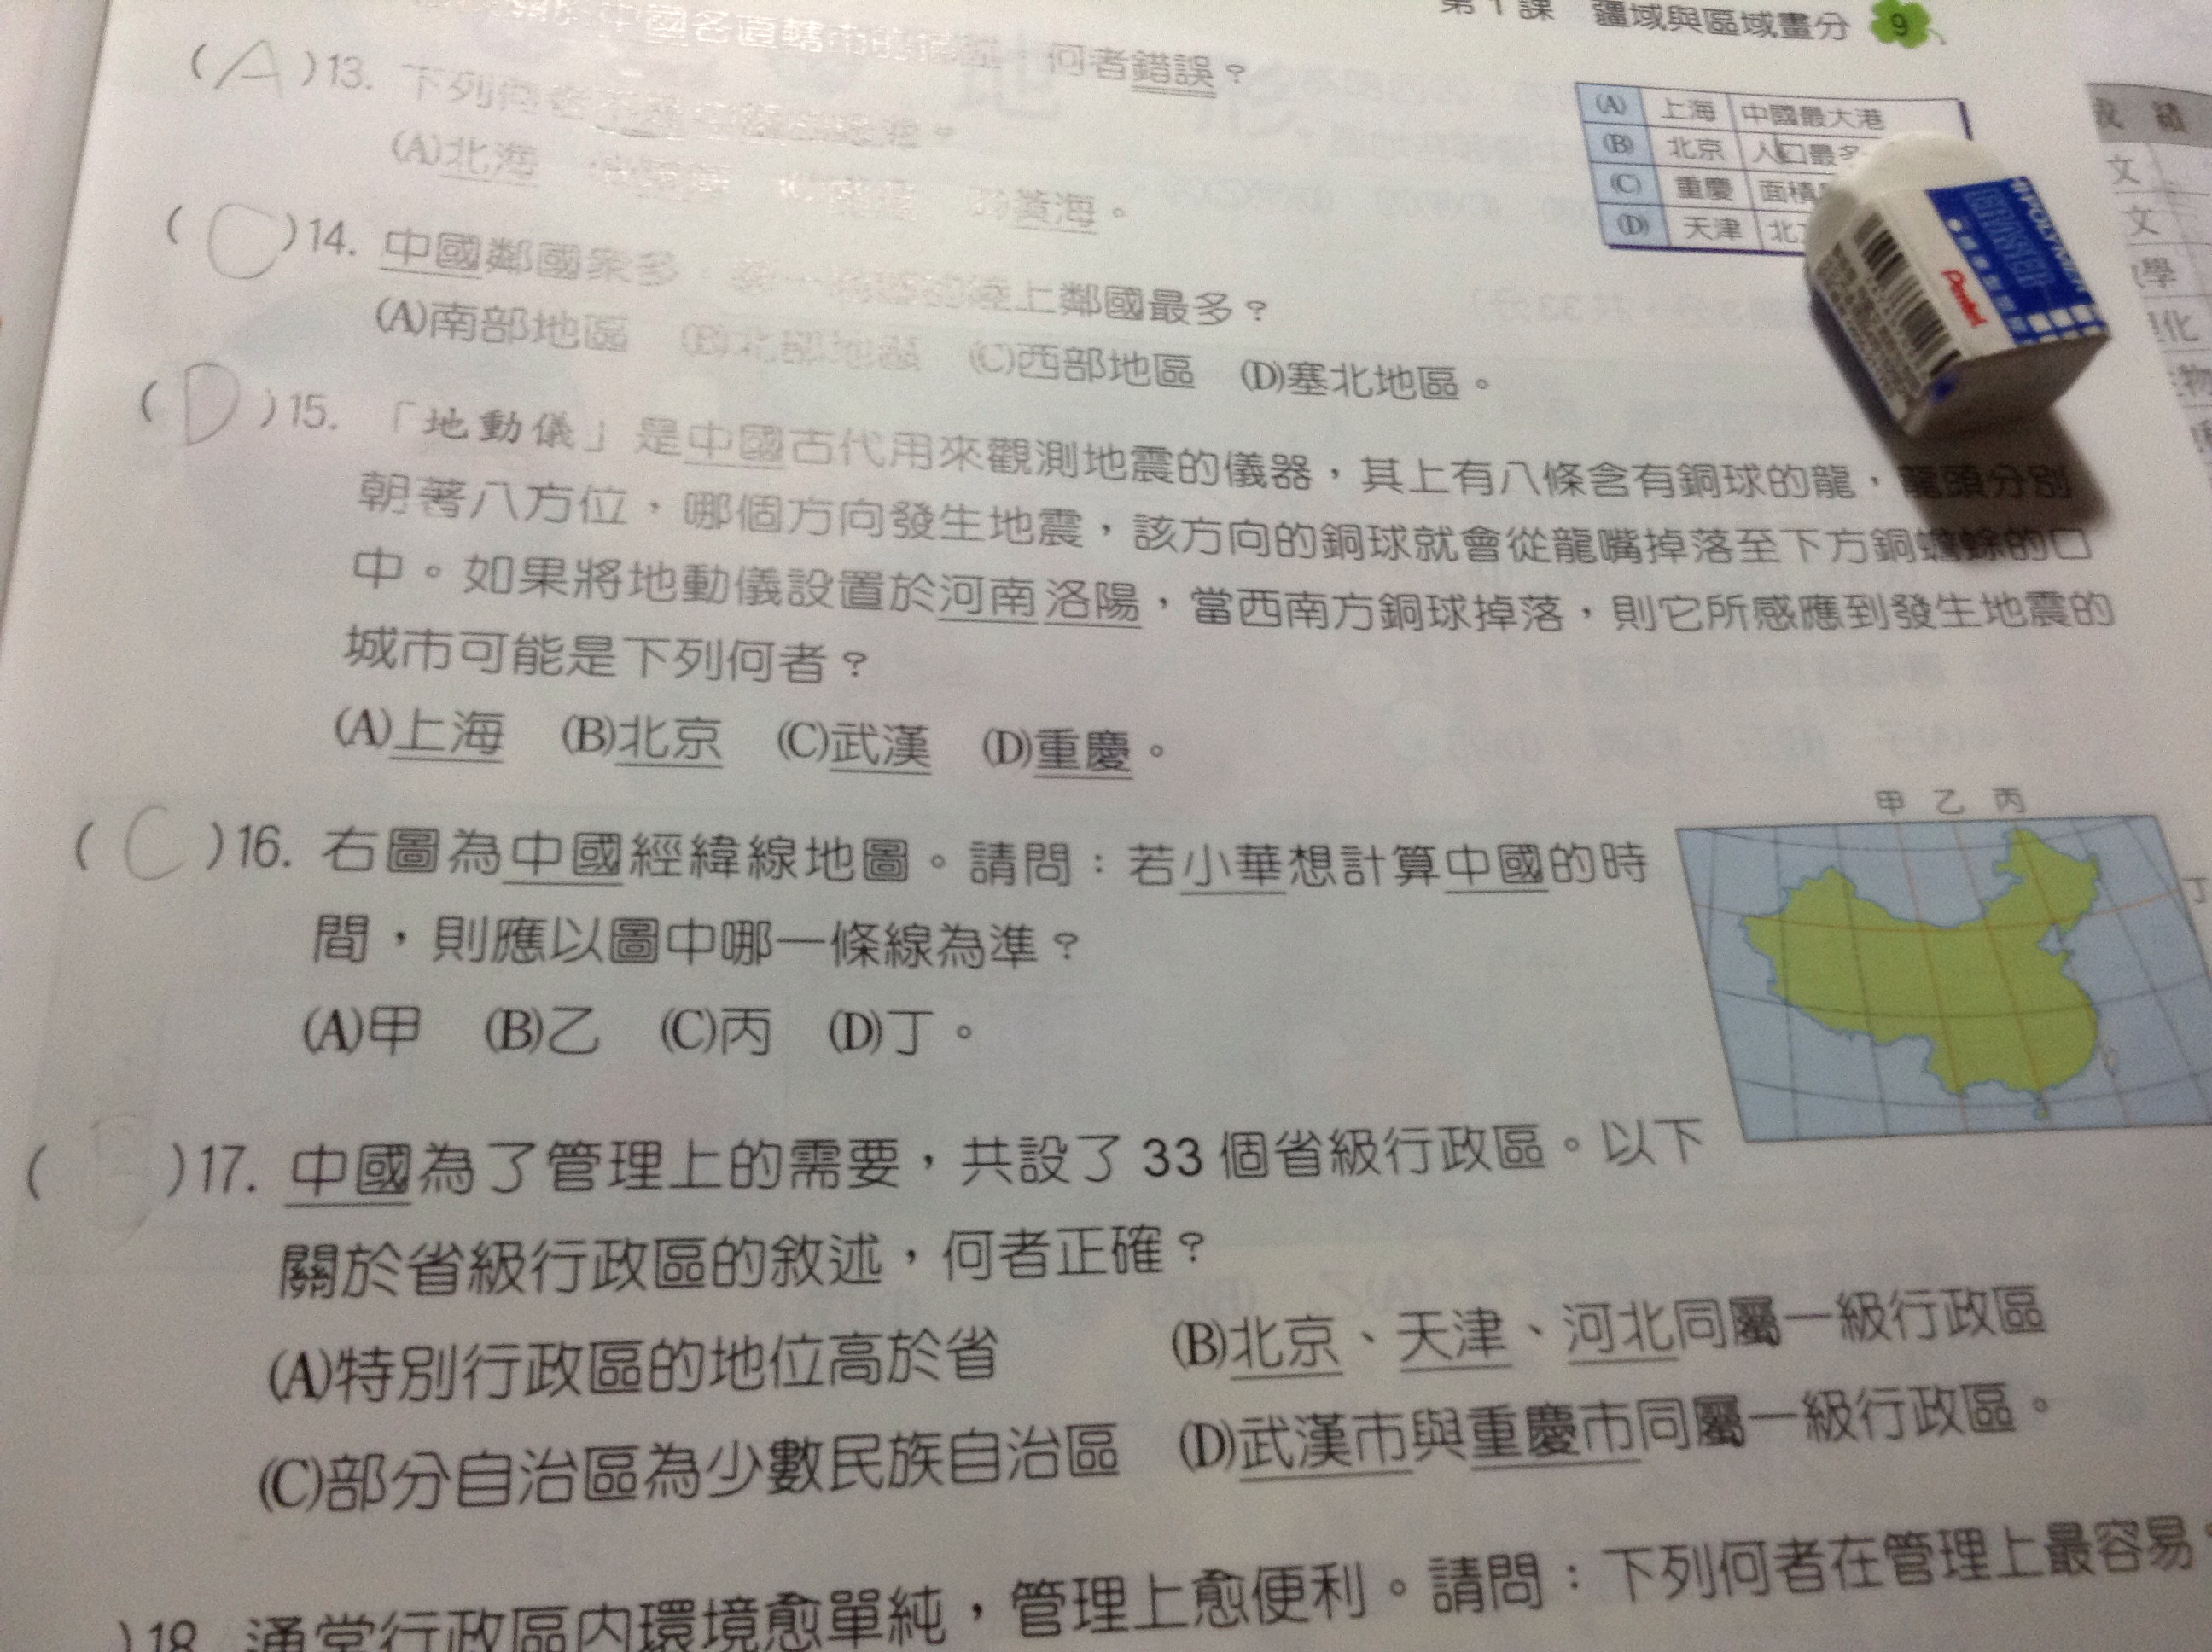 第1課 疆域與區域畫分 9
中國各直轄市的 何者錯誤？
(A) 上海 中國最大港
(B) 北京 人口最多
(C) 重慶 面積
(D) 天津 北
( A )13. 下列何者
(A)北海 黃海。
( C )14. 中國鄰國眾多，哪一 陸上鄰國最多？
(A)南部地區 (B)北部地區 (C)西部地區 (D)塞北地區。
( D )15. 「地動儀」是中國古代用來觀測地震的儀器，其上有八條含有銅球的龍，龍頭分別
朝著八方位，哪個方向發生地震，該方向的銅球就會從龍嘴掉落至下方銅蟾蜍的口
中。如果將地動儀設置於河南洛陽，當西南方銅球掉落，則它所感應到發生地震的
城市可能是下列何者？
(A)上海 (B)北京 (C)武漢 (D)重慶。
( C )16. 右圖為中國經緯線地圖。請問：若小華想計算中國的時
間，則應以圖中哪一條線為準？
(A)甲 (B)乙 (C)丙 (D)丁。
甲 乙 丙
丁
( )17. 中國為了管理上的需要，共設了33個省級行政區。以下
關於省級行政區的敘述，何者正確？
(A)特別行政區的地位高於省 (B)北京、天津、河北同屬一級行政區
(C)部分自治區為少數民族自治區 (D)武漢市與重慶市同屬一級行政區。
)18. 通常行政區內環境愈單純，管理上愈便利。請問：下列何者在管理上最容易
成 績
文
文
學
化
物
Pentel
ERASER